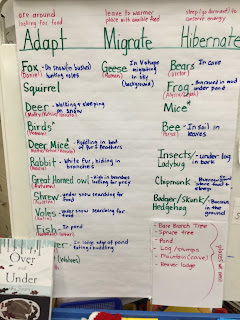 are around
looking for food
leave to warmer
place with available food
sleep (go dormant) to
conserve energy
Adapt Migrate Hibernate
Fox - On snow (in bushes)
hunting voles
Squirrel
Deer - Walking & sleeping
on snow
Birds*
Deer Mice* - Huddling in bed
of fur & feathers
Rabbit - White fur, hiding in
branches
Great Horned owl - High in branches
looking for prey
Shrew - under snow searching for
food
Voles - under snow searching for
food
Fish - In pond
In large edge of pond
eating & huddling
(Wolves)
Geese - In V shape
migrating
in sky
(background)
Bears - In cave
Frog - Burrowed in mud
under pond
Mice*
Bee - In soil in
leaves
Insects/ - under log
Ladybug in bark
Chipmunk
Badger/Skunk/ - Burrows
Hedgehog in the
ground
Bare Branch Tree
Spruce tree
Pond
Log/stumps
Mountain (cave)
Beaver lodge
places we need
Over
and
Under